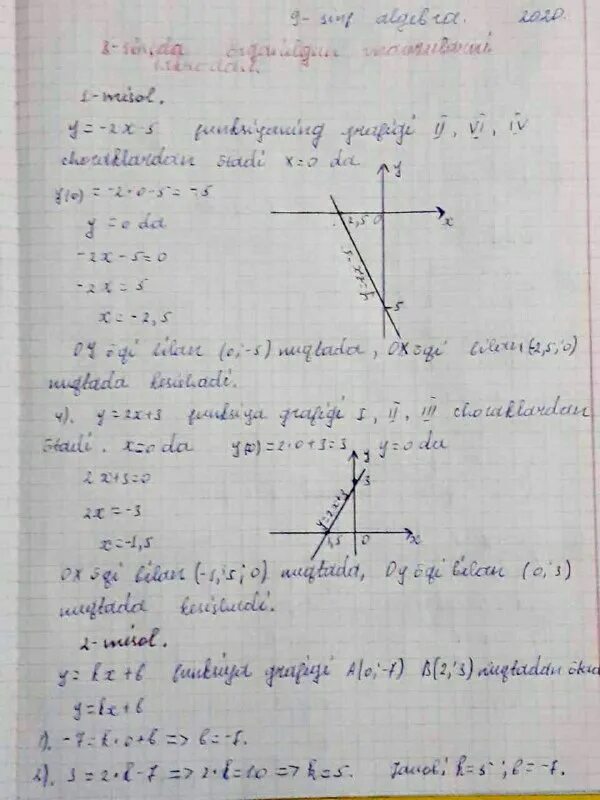 9-sinf algebra. 2020.
8-sinfda o'rganilgan mavzularni
1-misol.
y = -2x-5 funksiyaning grafigi II, VI, IV
choraklardan ötadi x=0 da
y(0) = -2·0-5 = -5
y = 0 da
-2x-5=0
-2x = 5
x = -2,5
y
2,5 0 x
-5
OY öqi bilan (0;-5) nuqtada, OX öqi bilan (-2,5;0)
nuqtada kesishadi.
4). y = 2x+3 funksiya grafigi I, II, III choraklardan
ötadi. x=0 da y(0)=2·0+3=3 y=0 da
2x+3=0
2x = -3
x=-1,5
y
3
y=2x+3
1,5 0 x
OX öqi bilan (-1,5; 0) nuqtada, Oy öqi bilan (0;3)
nuqtada kesishadi.
2-misol.
y = kx+b funksiya grafigi A(0;-7) B(2;3) nuqtadan
y=kx+b
1). -7=k·0+b => b=-7.
2). 3=2·k-7 => 2·k=10 => k=5. Javob: k=5; b=-7.